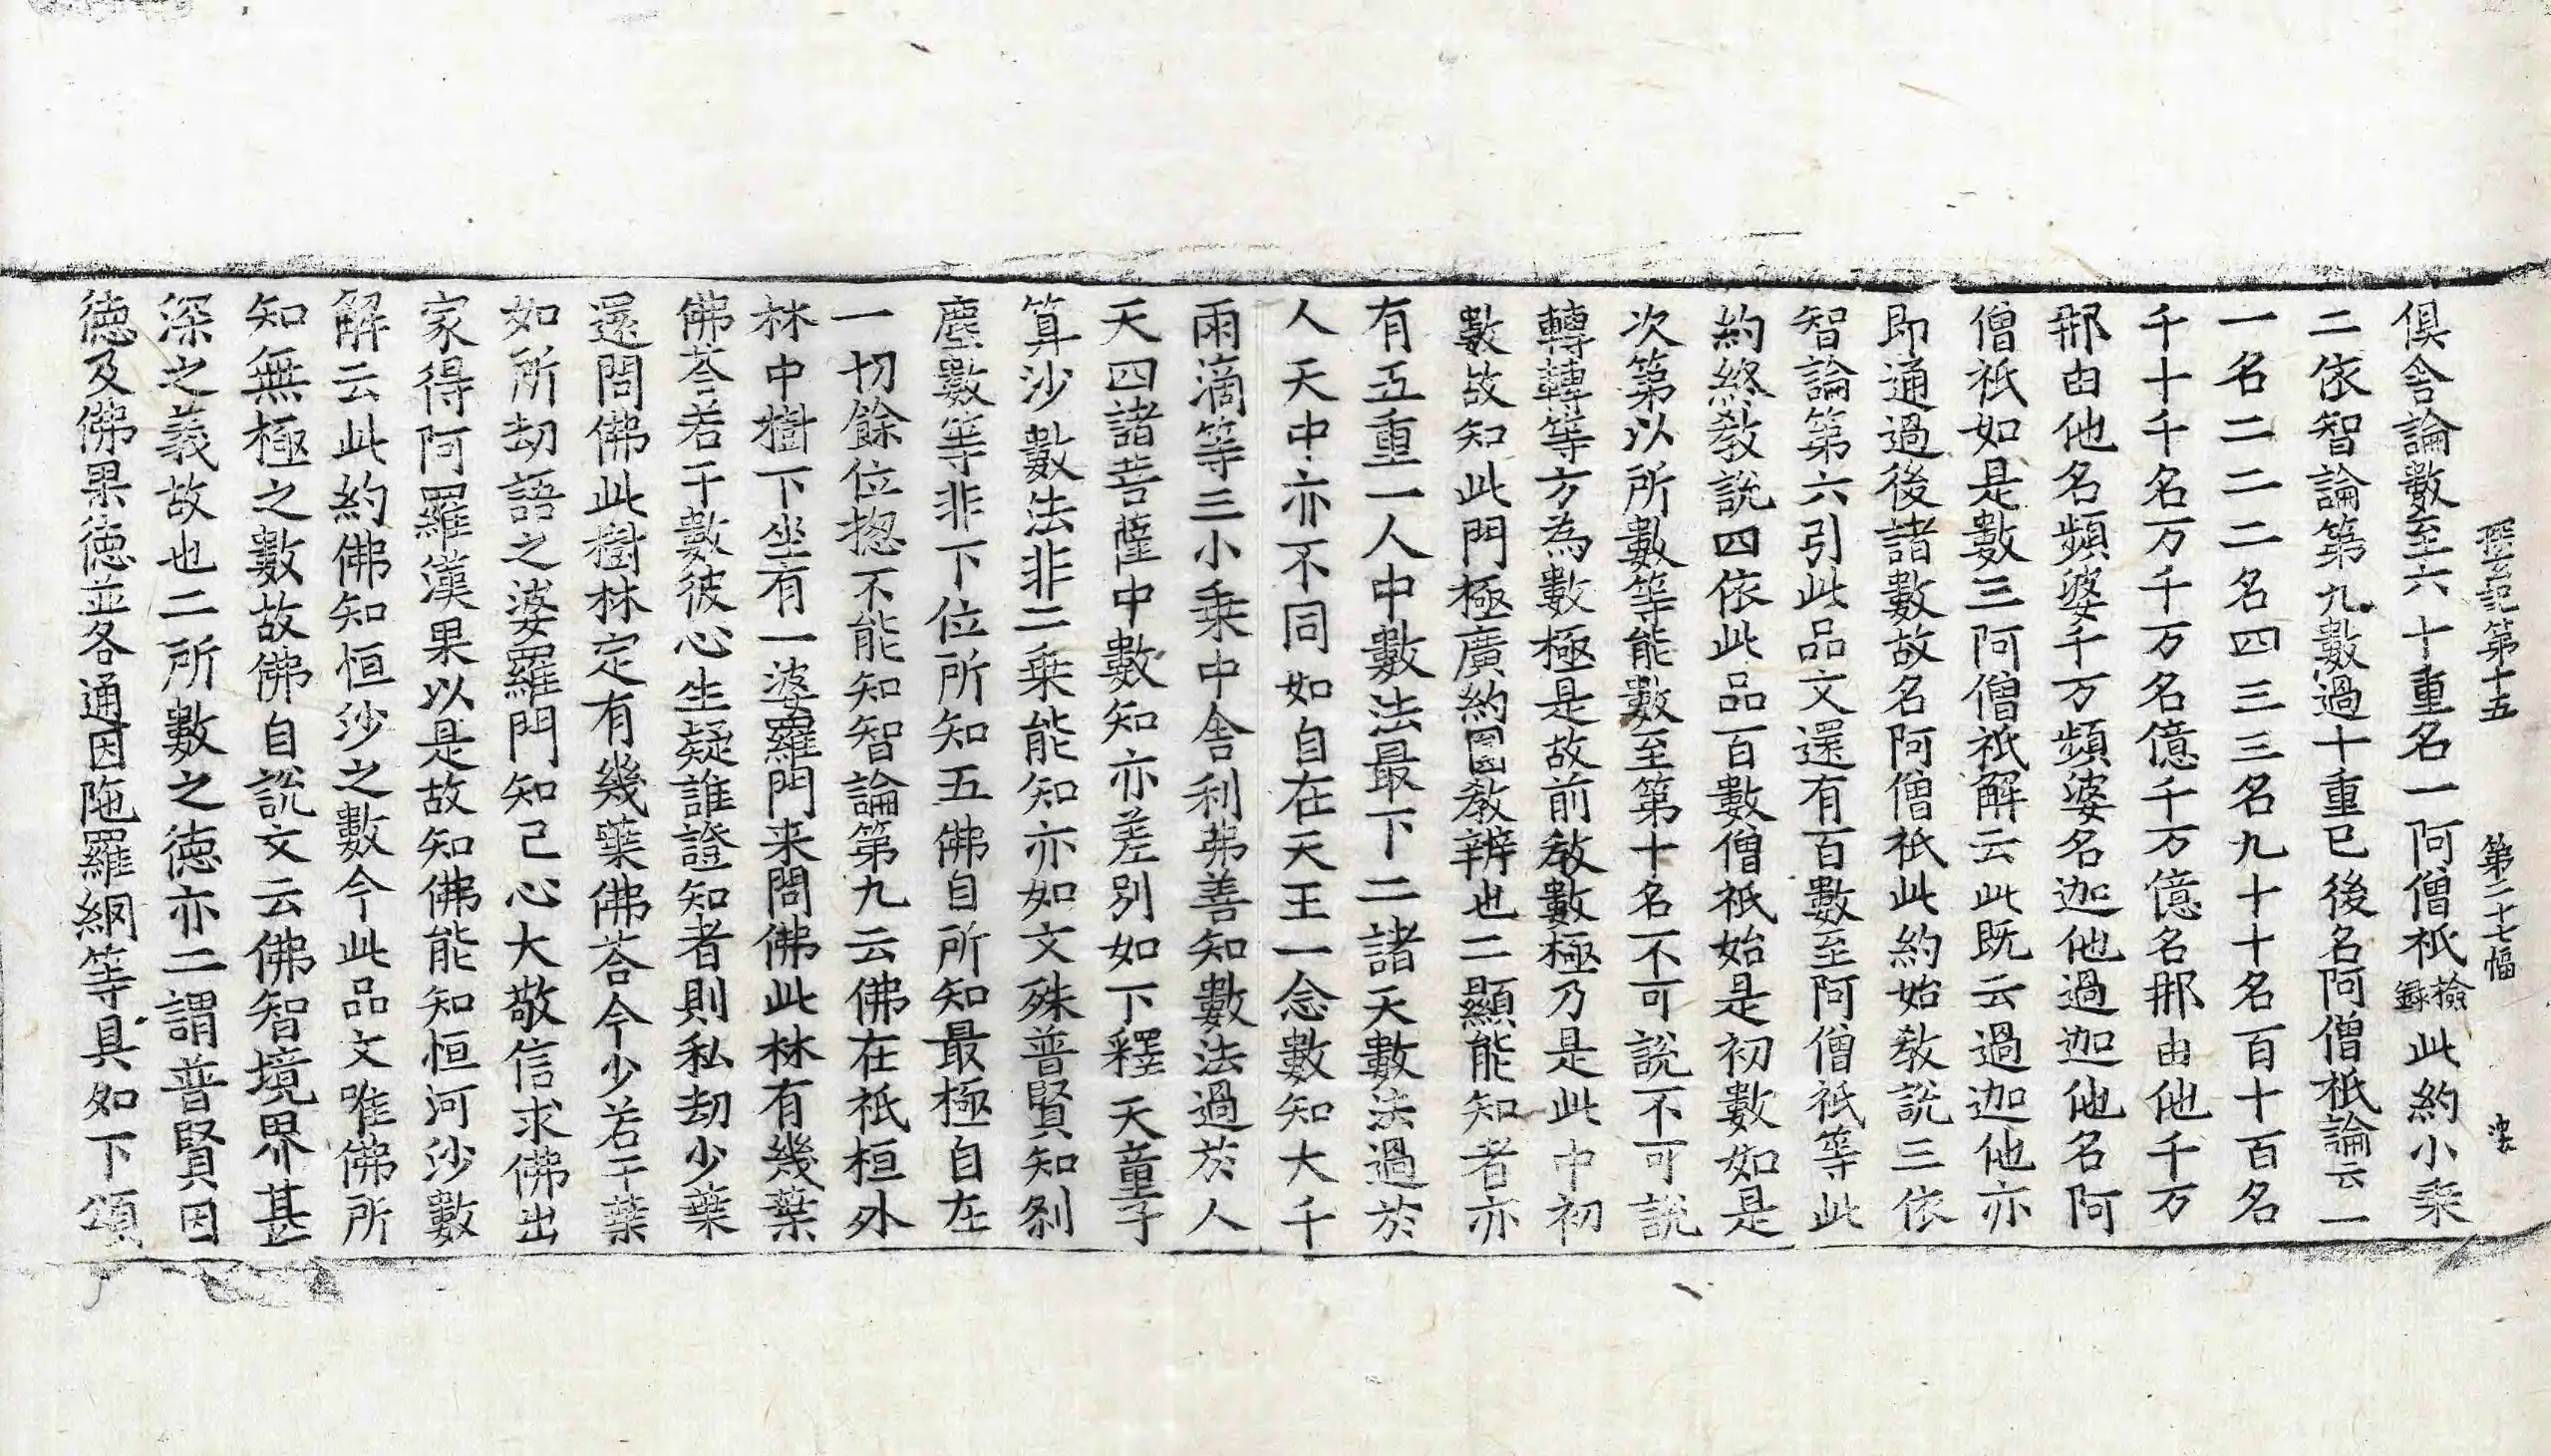 探玄記第十五 第二十七幅 㳒
俱舍論數至六十重名一阿僧祇檢録此約小乘
二依智論第九數過十重已後名阿僧祇論云一
一名二二二名四三三名九十十名百十百名
千十千名万千万名億千万億名那由他千万
那由他名頻婆千万頻婆名迦他過迦他名阿
僧祇如是數三阿僧祇解云此既云過迦他亦
即通過後諸數故名阿僧祇此約始教說三依
智論第六引此品文還有百數至阿僧祇等此
約終教說四依此品百數僧祇始是初數如是
次第以所數等能數至第十名不可說不可說
轉轉等方為數極是故前教數極乃是此中初
數故知此門極廣約圎教辨也二顯能知者亦
有五重一人中數法最下二諸天數法過於
人天中亦不同如自在天王一念數知大千
雨滴等三小乘中舍利弗善知數法過於人
天四諸菩薩中數知亦差別如下釋天童子
算沙數法非二乘能知亦如文殊普賢知刹
塵數等非下位所知五佛自所知最極自在
一切餘位揔不能知智論第九云佛在祇桓外
林中樹下坐有一婆羅門来問佛此林有幾葉
佛荅若干數彼心生疑誰證知者則私刼少葉
還問佛此樹林定有幾葉佛荅今少若干葉
如所刼語之婆羅門知己心大敬信求佛出
家得阿羅漢果以是故知佛能知恒河沙數
解云此約佛知恒沙之數今此品文唯佛所
知無極之數故佛自說文云佛智境界甚
深之義故也二所數之徳亦二謂普賢因
徳及佛果徳並各通因陁羅網等具如下頌